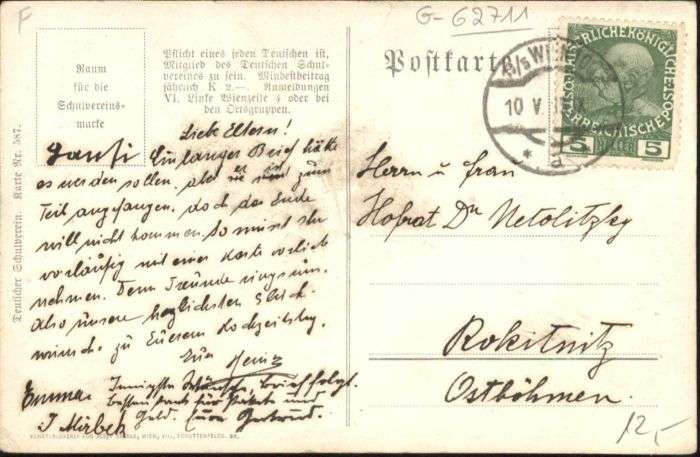 F
G-62711
Raum
für die
Schulvereins-
marke
Pflicht eines jeden Deutschen ist,
Mitglied des Deutschen Schul-
vereines zu sein. Mindestbeitrag
jährlich K 2.—. Anmeldungen
VI. Linke Wienzeile 4 oder bei
den Ortsgruppen.
Postkarte
KAISERLICHE KÖNIGLICHE
ÖSTERREICHISCHE POST
5 5
WIEN
10 V
Deutscher Schulverein. Karte Nr. 587.
Liebe Eltern!
Ein langer Brief hätte
es werden sollen, aber zum
Teil angefangen, doch das Ende
will nicht kommen. So müsst Ihr
vorläufig mit einer Karte vorlieb
nehmen. Denn Freunde ringsum.
Also unsere herzlichsten Glück-
wünsche zu Euerem Hochzeitstag.
Euer Heinz
Emma. Innigste Wünsche, Brief folgt.
Besten Dank für Pakete und
Geld. Eure
Herrn u Frau
Hofrat Dr Netolitzky
Rokitnitz
Ostböhmen.
12,-